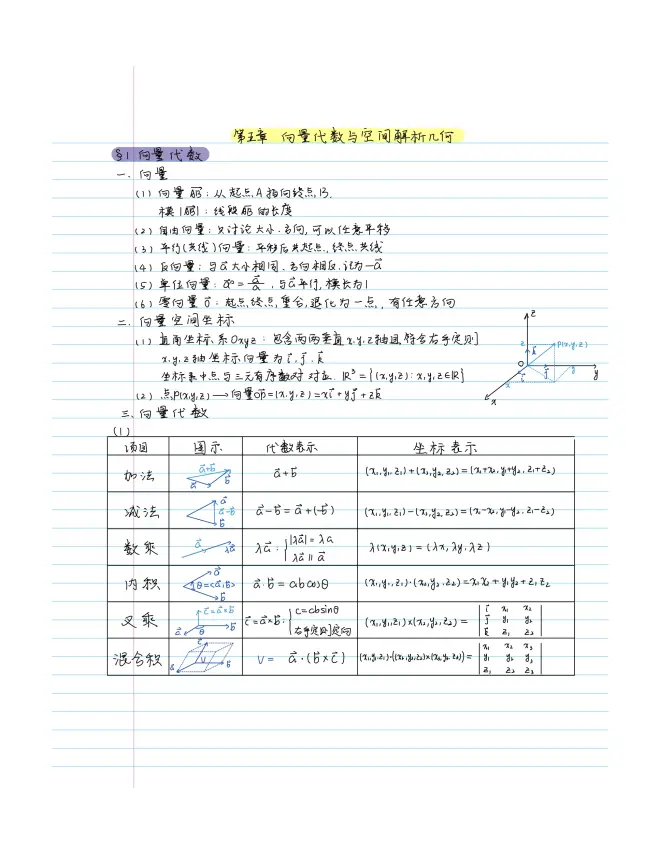 第五章 向量代数与空间解析几何
§1 向量代数
一. 向量
(1) 向量 AB: 从起点A指向终点B.
模 |AB|: 线段AB的长度
(2) 自由向量: 只讨论大小.方向, 可以任意平移
(3) 平行(共线)向量: 平移后共起点, 终点共线
(4) 反向量: 与a⃗大小相同、方向相反, 记为-a⃗
(5) 单位向量: a⃗° = a⃗/a, 与a⃗平行, 模长为1
(6) 零向量 0⃗: 起点终点重合, 退化为一点, 有任意方向
二. 向量空间坐标
(1) 直角坐标系Oxyz: 包含两两垂直x.y.z轴且符合右手定则
x.y.z轴坐标向量为 i⃗, j⃗, k⃗
坐标系中点与三元有序数对对应 ℝ³={(x,y,z): x,y,z∈ℝ}
(2) 点P(x,y,z) → 向量OP=(x,y,z)=xi⃗+yj⃗+zk⃗
z P(x,y,z) z k⃗ O j⃗ i⃗ y y x x
三. 向量代数
(1)
项目 图示 代数表示 坐标表示
加法 a⃗+b⃗ a⃗ b⃗ a⃗+b⃗ (x₁,y₁,z₁)+(x₂,y₂,z₂)=(x₁+x₂,y₁+y₂,z₁+z₂)
减法 a⃗ a⃗-b⃗ b⃗ a⃗-b⃗=a⃗+(-b⃗) (x₁,y₁,z₁)-(x₂,y₂,z₂)=(x₁-x₂,y₁-y₂,z₁-z₂)
数乘 a⃗ λa⃗ λa⃗: { |λa⃗|=λa λa⃗∥a⃗ λ(x,y,z)=(λx,λy,λz)
内积 a⃗ θ=<a⃗,b⃗> b⃗ a⃗·b⃗=abcosθ (x₁,y₁,z₁)·(x₂,y₂,z₂)=x₁x₂+y₁y₂+z₁z₂
叉乘 c⃗=a⃗×b⃗ a⃗ θ b⃗ c⃗=a⃗×b⃗: { c=absinθ 右手定则定向 (x₁,y₁,z₁)×(x₂,y₂,z₂)= | i⃗ x₁ x₂ j⃗ y₁ y₂ k⃗ z₁ z₂ |
混合积 c⃗ V a⃗ b⃗ V= a⃗·(b⃗×c⃗) (x₁,y₁,z₁)·((x₂,y₂,z₂)×(x₃,y₃,z₃))= | x₁ x₂ x₃ y₁ y₂ y₃ z₁ z₂ z₃ |